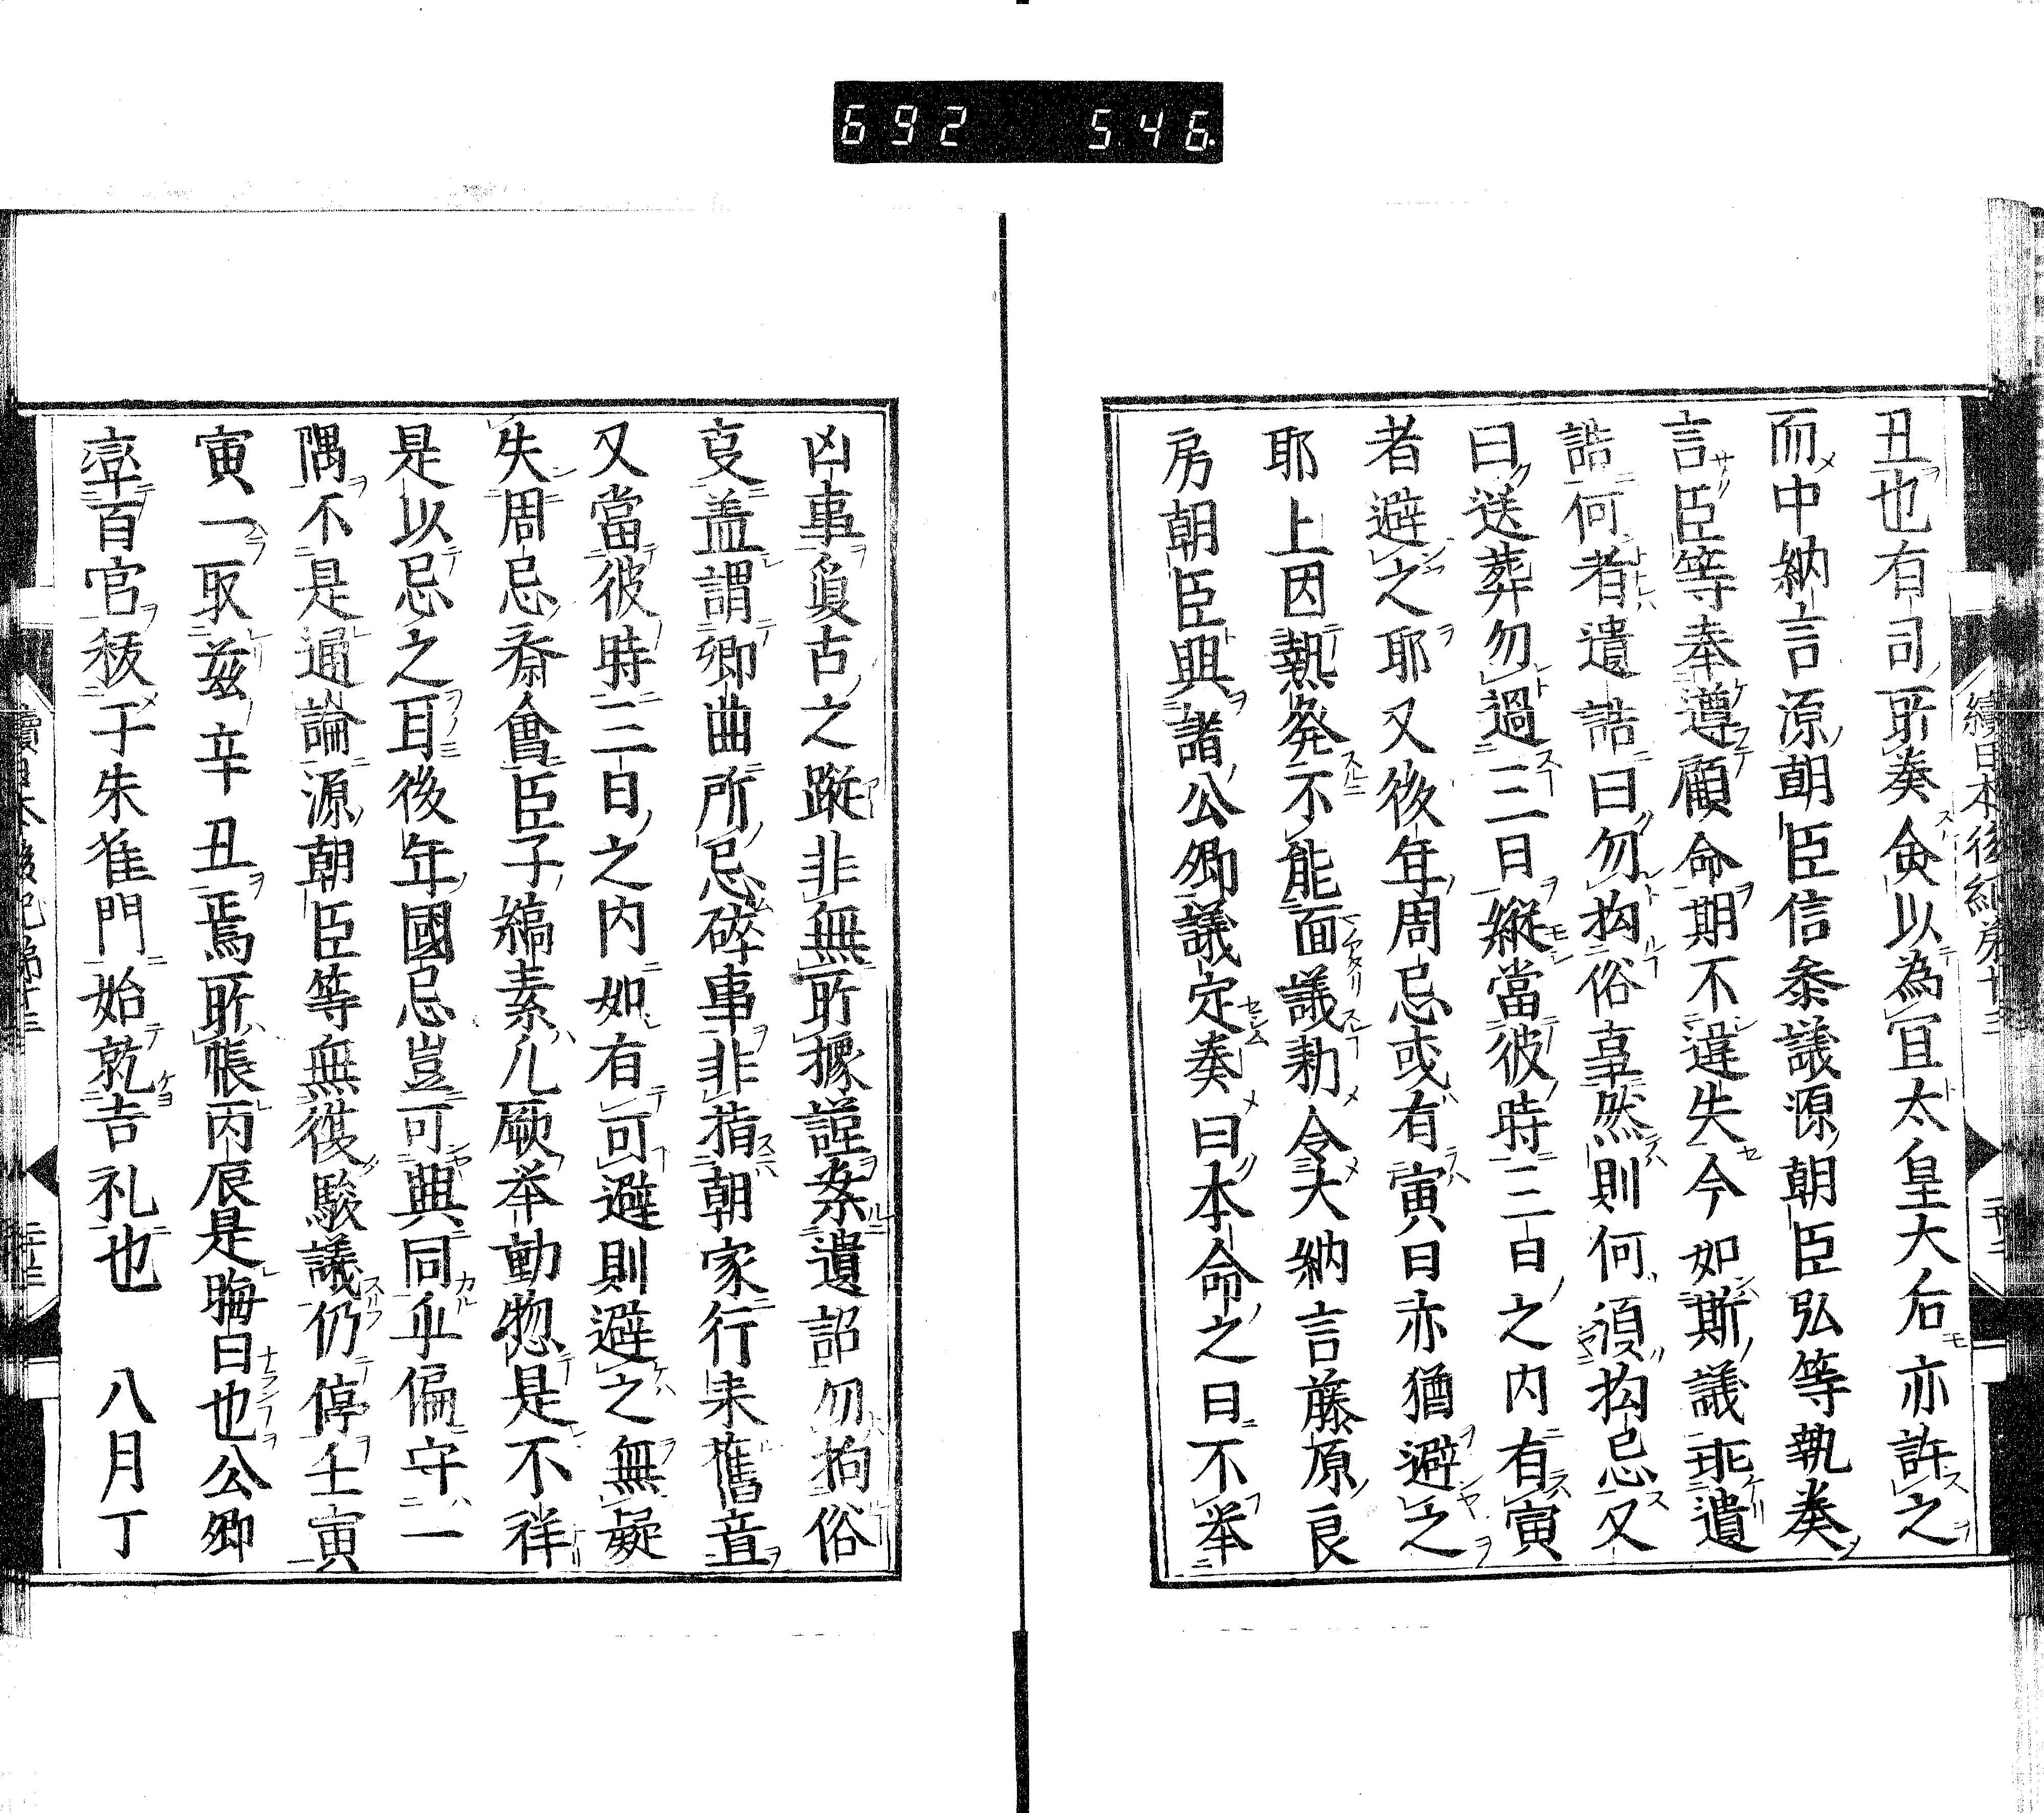 692 546
續日本後紀第十三
丑也有司所奏僉以為宜太皇大后亦許之
而中納言源朝臣信叅議源朝臣弘等執奏
言臣等奉遵顧命期不違失今如斯議乖遺
誥何者遺誥曰勿拘俗事然則何須拘忌又
曰送葬勿過三日縦當彼時三日之内有寅
者避之耶又後年周忌或有寅日亦猶避之
耶上因熱発不能面議勅令大納言藤原良
房朝臣與諸公卿議定奏曰本命之日不举
凶事負古之蹤非無所據謹案遺詔勿拘俗
㕝盖謂卿曲所忌碎事非指朝家行来舊章
又當彼時三日之内如有可避則避之無疑
失周忌斎會臣子縞素凢厥举動惣是不祥
是以忌之耳後年國忌豈可與同乎偏守一
隅不是通論源朝臣等無復駮議仍停壬寅
寅一取茲辛丑焉所帳丙辰是晦日也公卿
率百官秡于朱雀門始乾吉礼也　八月丁
續日本後紀第十三